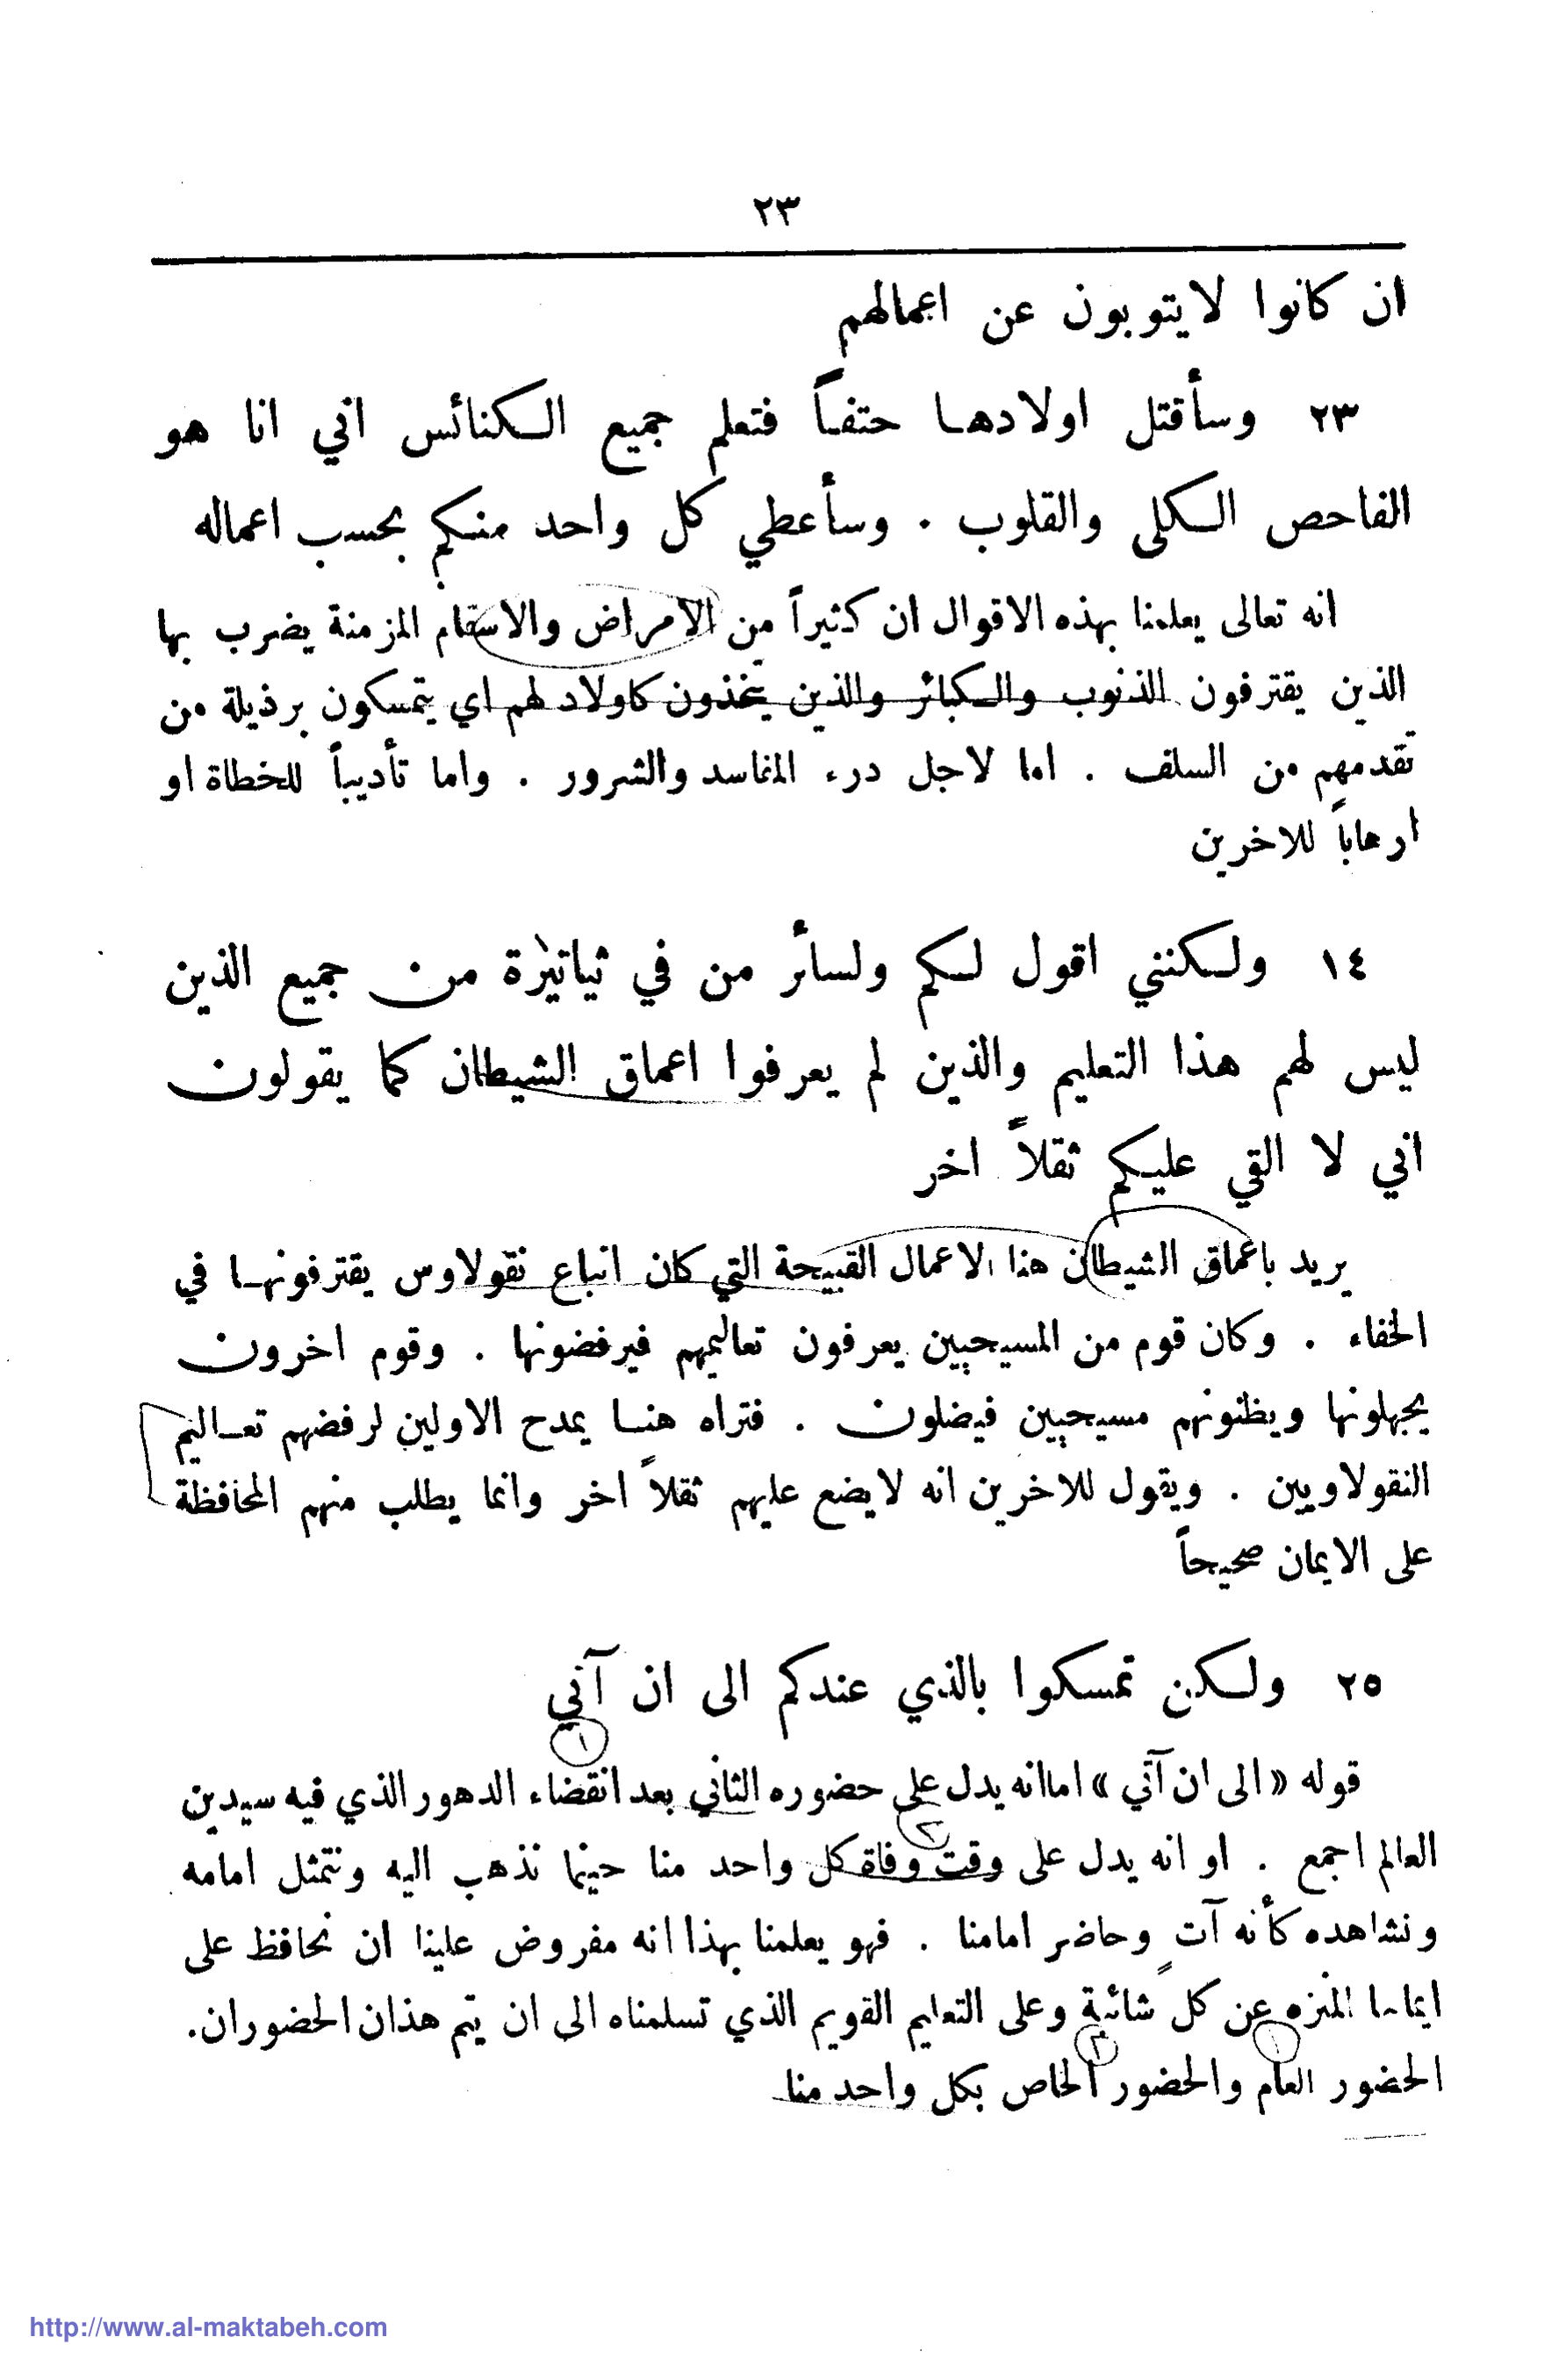 ٢٣
ان كانوا لا يتوبون عن اعمالهم
٢٣ وسأقتل اولادها حتفاً فتعلم جميع الكنائس اني انا هو
الفاحص الكلى والقلوب . وسأعطي كل واحد منكم بحسب اعماله
انه تعالى يعلمنا بهذه الاقوال ان كثيراً من الامراض والاسقام المزمنة يضرب بها
الذين يقترفون الذنوب والكبائر والذين يتخذون كاولاد لهم اي يتمسكون برذيلة من
تقدمهم من السلف . اما لاجل درء المفاسد والشرور . واما تأديباً للخطاة او
ارهاباً للاخرين
١٤ ولكنني اقول لكم ولسائر من في ثياتيرة من جميع الذين
ليس لهم هذا التعليم والذين لم يعرفوا اعماق الشيطان كما يقولون
اني لا القي عليكم ثقلاً اخر
يريد باعماق الشيطان هنا الاعمال القبيحة التي كان اتباع نقولاوس يقترفونها في
الخفاء . وكان قوم من المسيحيين يعرفون تعاليمهم فيرفضونها . وقوم اخرون
يجهلونها ويظنونهم مسيحيين فيضلون . فتراه هنا يمدح الاولين لرفضهم تعاليم
النقولاويين . ويقول للاخرين انه لا يضع عليهم ثقلاً اخر وانما يطلب منهم المحافظة
على الايمان صحيحاً
٢٥ ولكن تمسكوا بالذي عندكم الى ان آتي
١
قوله «الى ان آتي» اما انه يدل على حضوره الثاني بعد انقضاء الدهور الذي فيه سيدين
٢
العالم اجمع . او انه يدل على وقت وفاة كل واحد منا حينما نذهب اليه ونتمثل امامه
ونشاهده كأنه آتٍ وحاضر امامنا . فهو يعلمنا بهذا انه مفروض علينا ان نحافظ على
ايماننا المنزه عن كل شائبة وعلى التعليم القويم الذي تسلمناه الى ان يتم هذان الحضوران.
١ ٢
الحضور العام والحضور الخاص بكل واحد منا
http://www.al-maktabeh.com